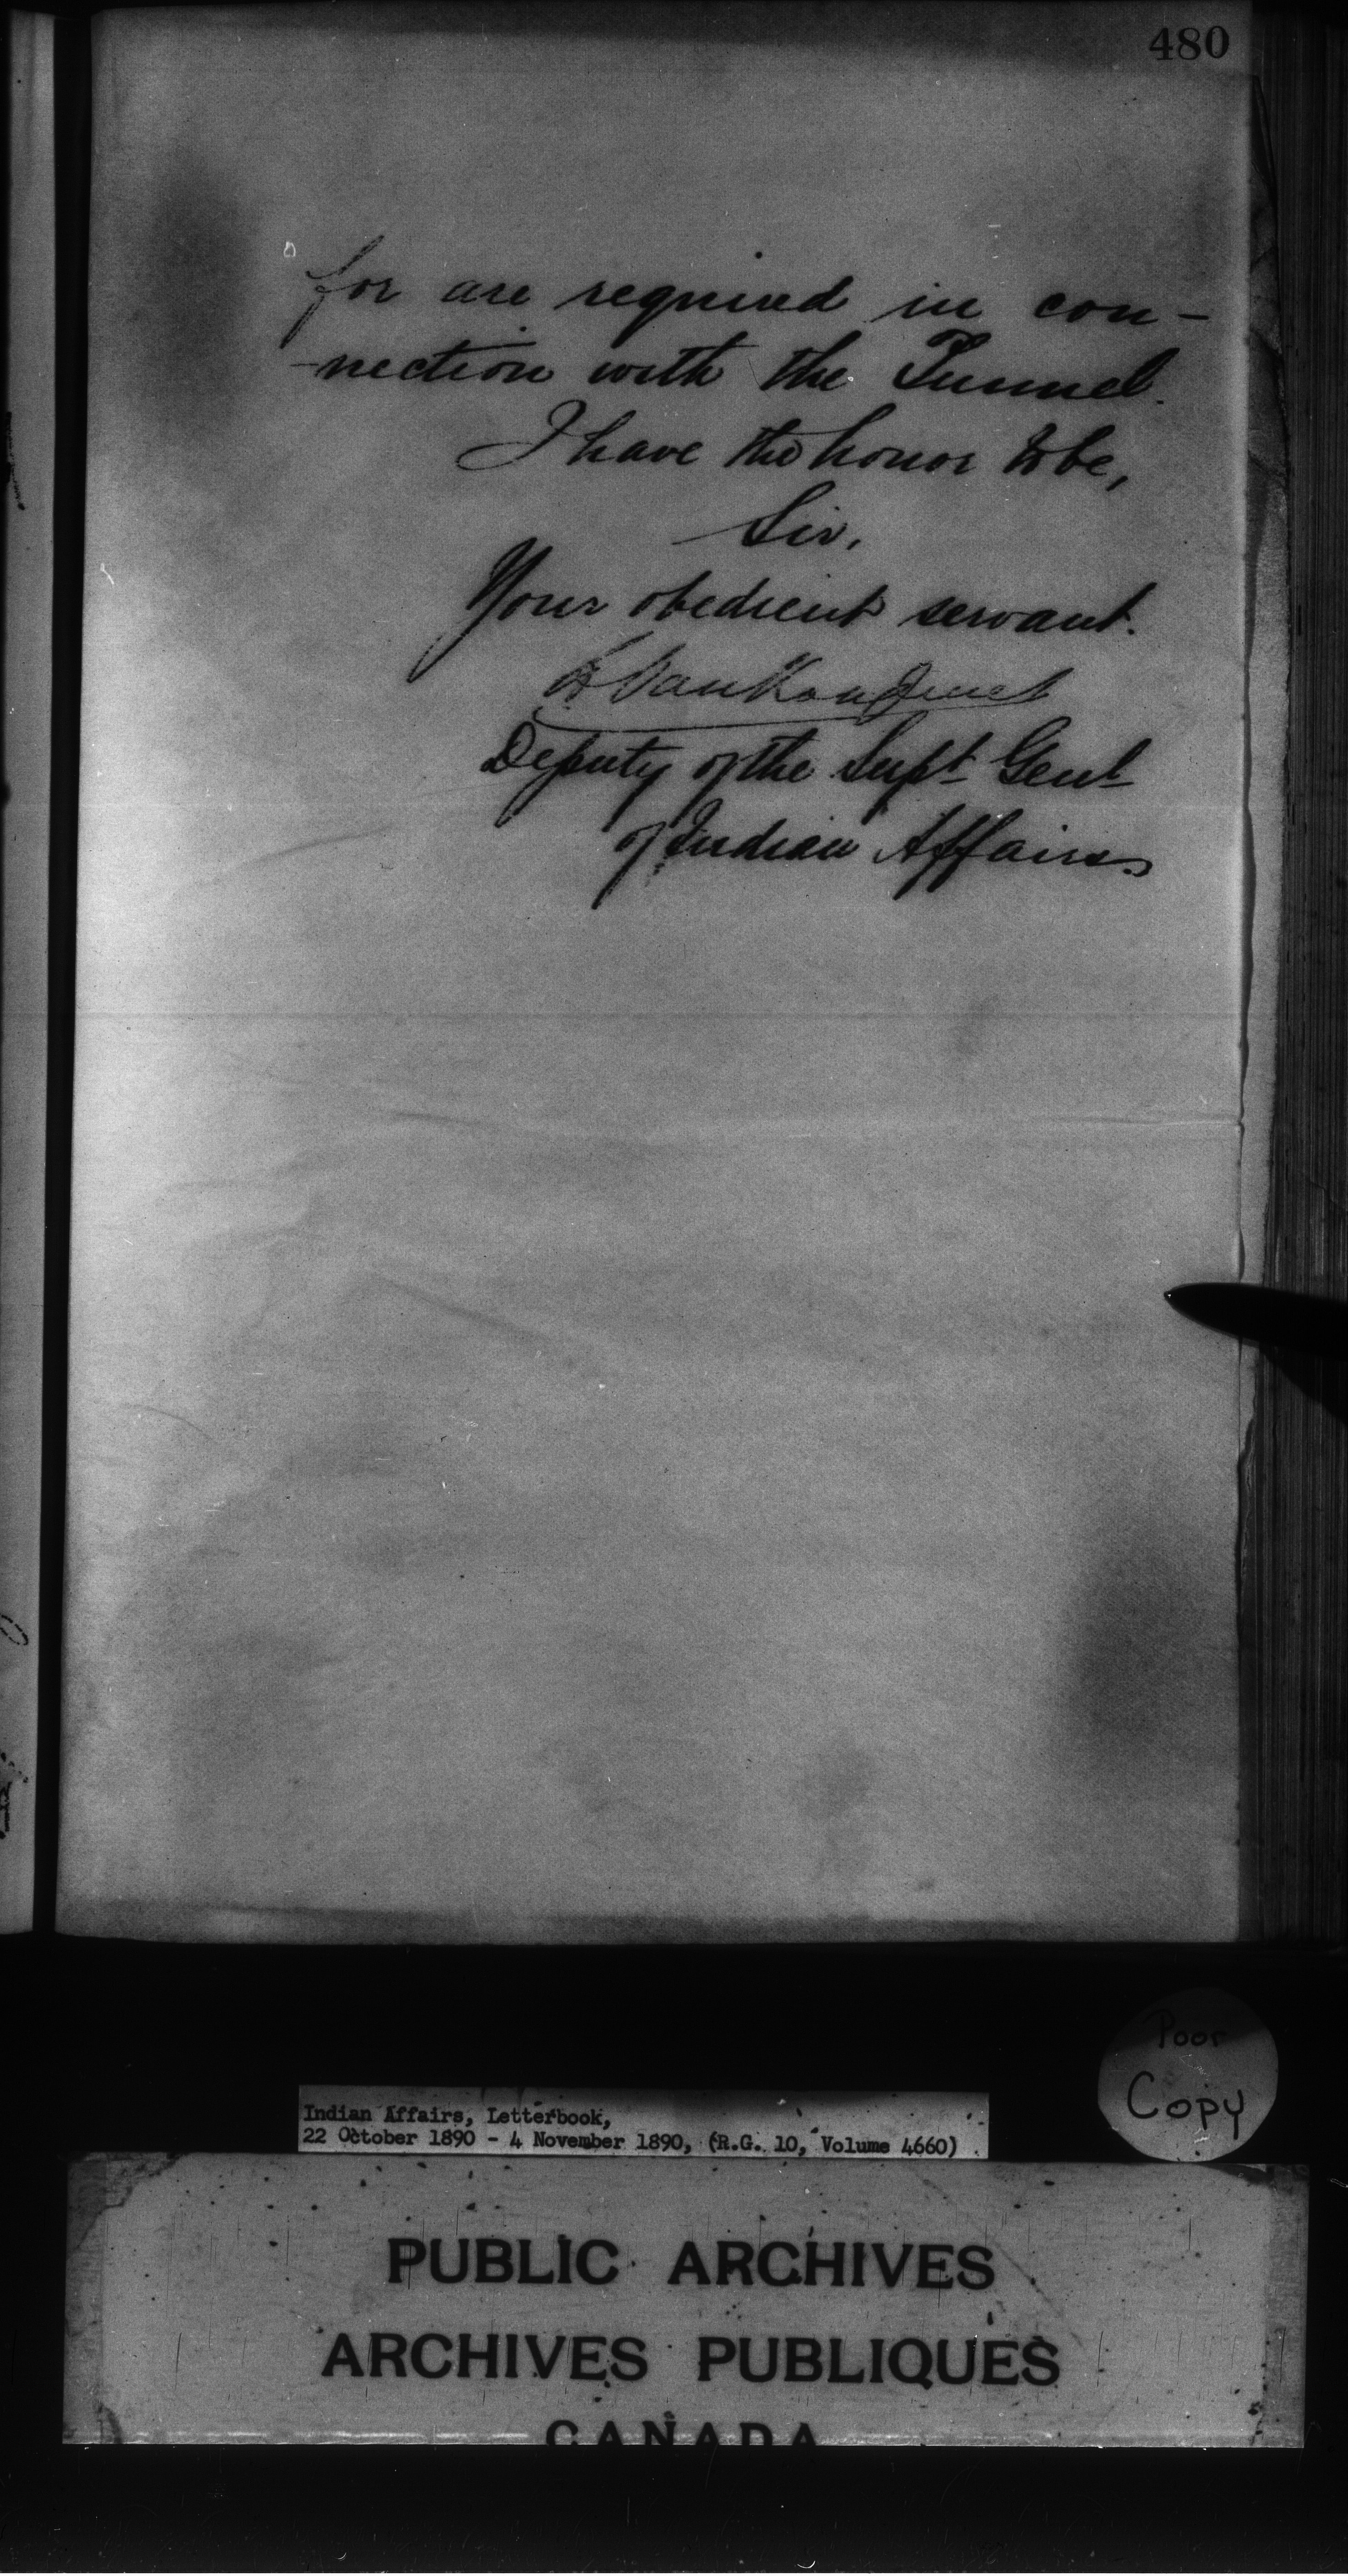 480
for are required in con-
-nection with the Tunnel.
I have the honor to be,
Sir,
Your obedient servant.
L VanKoughnet
Deputy of the Supt Genl
of Indian Affairs.
Poor
Copy
Indian Affairs, Letterbook,
22 October 1890 - 4 November 1890, (R.G. 10, Volume 4660)
PUBLIC ARCHIVES
ARCHIVES PUBLIQUES
CANADA